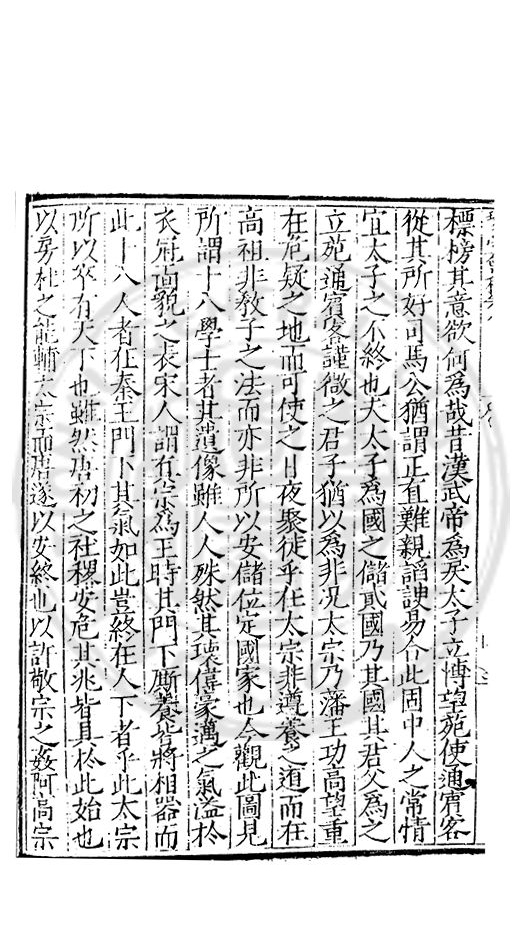 標榜其意欲何為哉昔漢武帝為戾太子立博望苑使通賓客
從其所好司馬公猶謂正直難親謟諛易合此固中人之常情
宜太子之不終也夫太子為國之儲貳國乃其國其君父為之
立苑通賓客謹微之君子猶以為非况太宗乃藩王功高望重
在危疑之地而可使之日夜聚徒乎在太宗非遵養之道而在
高祖非教子之法而亦非所以安儲位定國家也今觀此圖見
所謂十八學士者其遺像雖人人殊然其瓌偉豪邁之氣溢於
衣冠面貌之表宋人謂在宗為王時其門下厮養皆將相器而
此十八人者在秦王門下其氣如此豈終在人下者乎此太宗
所以卒有天下也雖然唐初之社稷安危其兆皆具於此始也
以房杜之能輔太宗而唐遂以安終也以許敬宗之姦阿高宗